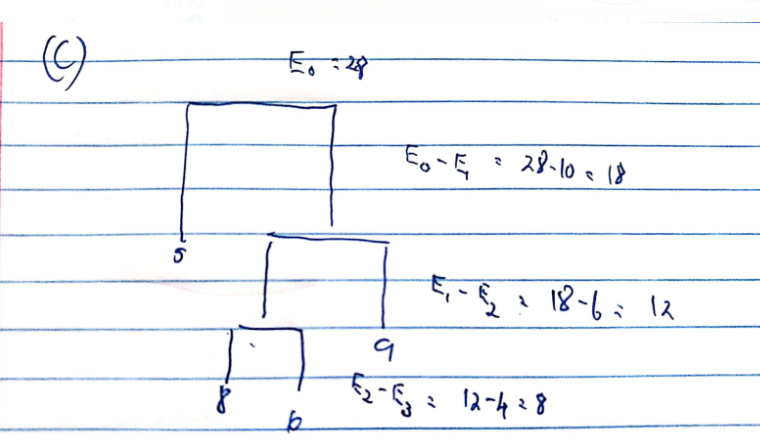 (C)
E₀ = 28
E₀ - E₁ = 28-10 = 18
5
E₁ - E₂ = 18-6 = 12
9
8
E₂ - E₃ = 12-4 = 8
6